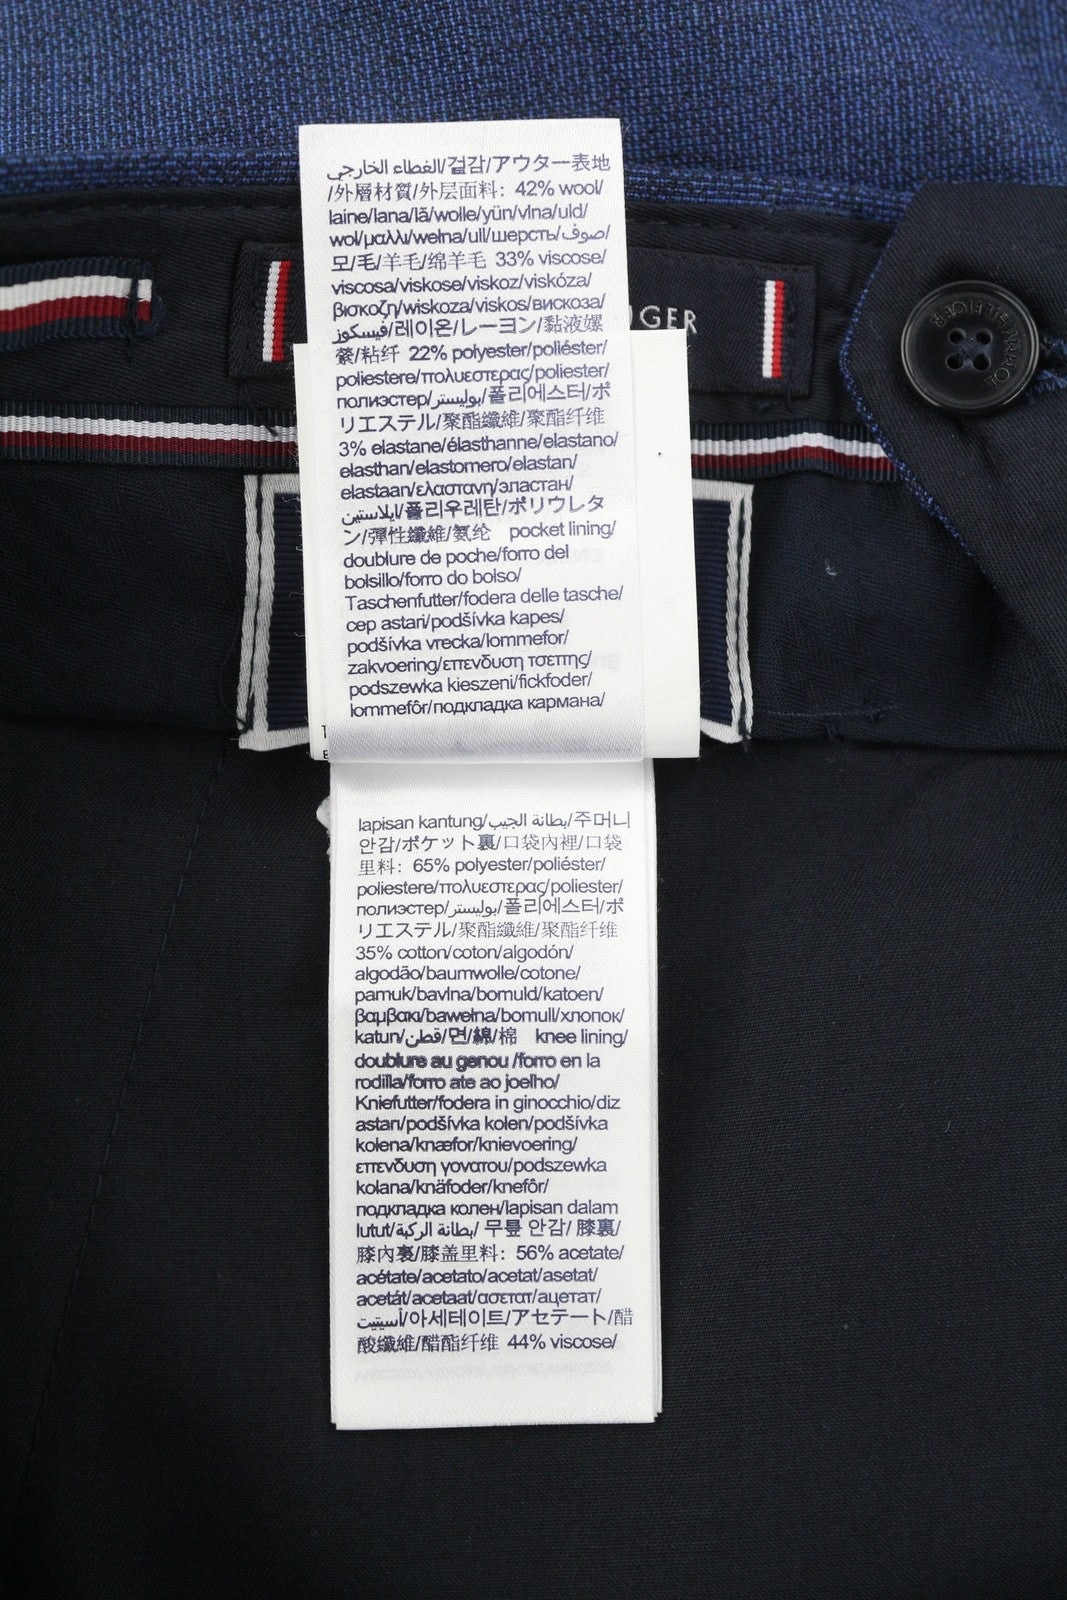 الغطاء الخارجي/겉감/アウター表地
/外層材質/外层面料: 42% wool/
laine/lana/lã/wolle/yün/vlna/uld/
wol/μαλλι/wełna/ull/шерсть/صوف/
모/毛/羊毛/绵羊毛 33% viscose/
viscosa/viskose/viskoz/viskóza/
βισκοζη/wiskoza/viskos/вискоза/
فيسكوز/레이온/レーヨン/黏液嫘
縈/粘纤 22% polyester/poliéster/
poliestere/πολυεστερας/poliester/
полиэстер/بوليستر/폴리에스터/ポ
リエステル/聚酯纖維/聚酯纤维
3% elastane/élasthanne/elastano/
elasthan/elastomero/elastan/
elastaan/ελαστανη/эластан/
ايلاستين/폴리우레탄/ポリウレタ
ン/彈性纖維/氨纶 pocket lining/
doublure de poche/forro del
bolsillo/forro do bolso/
Taschenfutter/fodera delle tasche/
cep astari/podšívka kapes/
podšívka vrecka/lommefor/
zakvoering/επενδυση τσεπης/
podszewka kieszeni/fickfoder/
lommefôr/подкладка кармана/
lapisan kantung/بطانة الجيب/주머니
안감/ポケット裏/口袋內裡/口袋
里料: 65% polyester/poliéster/
poliestere/πολυεστερας/poliester/
полиэстер/بوليستر/폴리에스터/ポ
リエステル/聚酯纖維/聚酯纤维
35% cotton/coton/algodón/
algodão/baumwolle/cotone/
pamuk/bavlna/bomuld/katoen/
βαμβακι/bawełna/bomull/хлопок/
katun/قطن/면/綿/棉 knee lining/
doublure au genou /forro en la
rodilla/forro ate ao joelho/
Kniefutter/fodera in ginocchio/diz
astarı/podšívka kolen/podšívka
kolena/knæfor/knievoering/
επενδυση γονατου/podszewka
kolana/knäfoder/knefôr/
подкладка колен/lapisan dalam
lutut/بطانة الركبة/ 무릎 안감/ 膝裏/
膝內裏/膝盖里料: 56% acetate/
acétate/acetato/acetat/asetat/
acetát/acetaat/ασετατ/ацетат/
أسيتيت/아세테이트/アセテート/醋
酸纖維/醋酯纤维 44% viscose/
GER
TOMMY HILFIGER